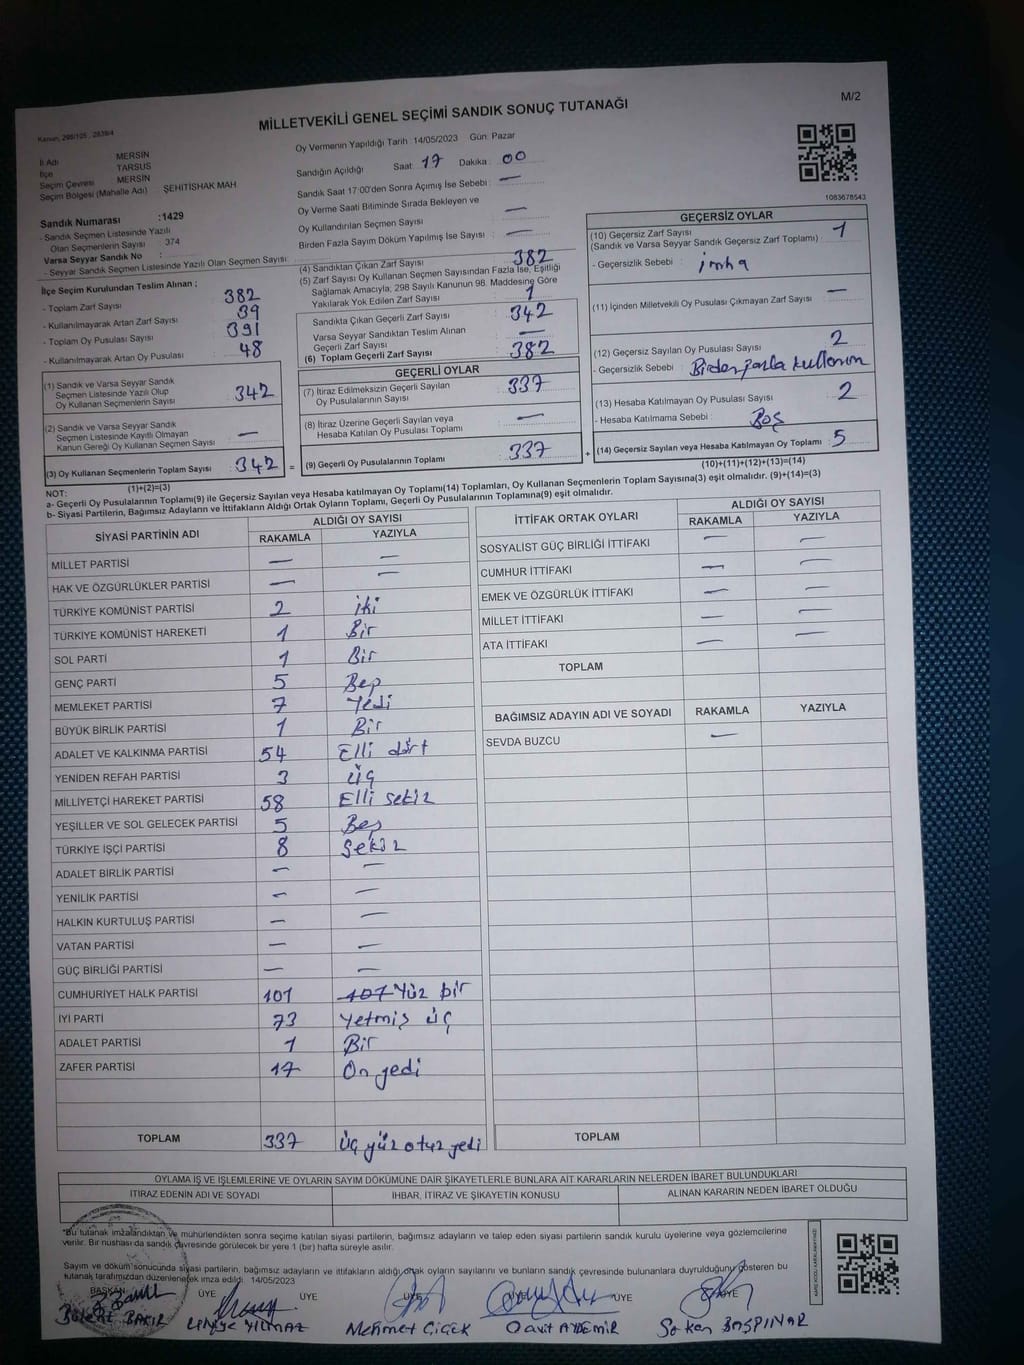 M/2
MİLLETVEKİLİ GENEL SEÇİMİ SANDIK SONUÇ TUTANAĞI
Kanun, 298/105 , 2839/4
Oy Vermenin Yapıldığı Tarih 14/05/2023 Gün: Pazar
İl Adı MERSİN
İlçe TARSUS
Seçim Çevresi MERSİN
Seçim Bölgesi (Mahalle Adı) ŞEHİTİSHAK MAH
Sandığın Açıldığı Saat 17 Dakika : 00
Sandık Saat 17:00'den Sonra Açımış İse Sebebi : —
Oy Verme Saati Bitiminde Sırada Bekleyen ve
Oy Kullandırılan Seçmen Sayısı —
Birden Fazla Sayım Döküm Yapılmış İse Sayısı : —
1083678543
Sandık Numarası :1429
- Sandık Seçmen Listesinde Yazılı
Olan Seçmenlerin Sayısı : 374
Varsa Seyyar Sandık No :
- Seyyar Sandık Seçmen Listesinde Yazılı Olan Seçmen Sayısı:
İlçe Seçim Kurulundan Teslim Alınan ;
- Toplam Zarf Sayısı 382
- Kullanılmayarak Artan Zarf Sayısı 39
- Toplam Oy Pusulası Sayısı 391
- Kullanılmayarak Artan Oy Pusulası 48
(1) Sandık ve Varsa Seyyar Sandık
Seçmen Listesinde Yazılı Olup
Oy Kullanan Seçmenlerin Sayısı : 342
(2) Sandık ve Varsa Seyyar Sandık
Seçmen Listesinde Kayıtlı Olmayan
Kanun Gereği Oy Kullanan Seçmen Sayısı : —
(3) Oy Kullanan Seçmenlerin Toplam Sayısı : 342 =
(1)+(2)=(3)
(4) Sandıktan Çıkan Zarf Sayısı : 382
(5) Zarf Sayısı Oy Kullanan Seçmen Sayısından Fazla İse, Eşitliği
Sağlamak Amacıyla, 298 Sayılı Kanunun 98. Maddesine Göre
Yakılarak Yok Edilen Zarf Sayısı : 1
Sandıkta Çıkan Geçerli Zarf Sayısı : 342
Varsa Seyyar Sandıktan Teslim Alınan
Geçerli Zarf Sayısı —
(6) Toplam Geçerli Zarf Sayısı : 382
GEÇERLİ OYLAR
(7) İtiraz Edilmeksizin Geçerli Sayılan
Oy Pusulalarının Sayısı : 337
(8) İtiraz Üzerine Geçerli Sayılan veya
Hesaba Katılan Oy Pusulası Toplamı : —
(9) Geçerli Oy Pusulalarının Toplamı : 337 +
GEÇERSİZ OYLAR
(10) Geçersiz Zarf Sayısı : 1
(Sandık ve Varsa Seyyar Sandık Geçersiz Zarf Toplamı)
- Geçersizlik Sebebi : imha
(11) İçinden Milletvekili Oy Pusulası Çıkmayan Zarf Sayısı : —
(12) Geçersiz Sayılan Oy Pusulası Sayısı : 2
- Geçersizlik Sebebi : Birden fazla kullanım
(13) Hesaba Katılmayan Oy Pusulası Sayısı : 2
- Hesaba Katılmama Sebebi : Boş
(14) Geçersiz Sayılan veya Hesaba Katılmayan Oy Toplamı : 5
(10)+(11)+(12)+(13)=(14)
NOT:
a- Geçerli Oy Pusulalarının Toplamı(9) ile Geçersiz Sayılan veya Hesaba katılmayan Oy Toplamı(14) Toplamları, Oy Kullanan Seçmenlerin Toplam Sayısına(3) eşit olmalıdır. (9)+(14)=(3)
b- Siyasi Partilerin, Bağımsız Adayların ve İttifakların Aldığı Ortak Oyların Toplamı, Geçerli Oy Pusulalarının Toplamına(9) eşit olmalıdır.
SİYASİ PARTİNİN ADI ALDIĞI OY SAYISI
RAKAMLA YAZIYLA
MİLLET PARTİSİ — —
HAK VE ÖZGÜRLÜKLER PARTİSİ — —
TÜRKİYE KOMÜNİST PARTİSİ 2 iki
TÜRKİYE KOMÜNİST HAREKETİ 1 Bir
SOL PARTİ 1 Bir
GENÇ PARTİ 5 Beş
MEMLEKET PARTİSİ 7 Yedi
BÜYÜK BİRLİK PARTİSİ 1 Bir
ADALET VE KALKINMA PARTİSİ 54 Elli dört
YENİDEN REFAH PARTİSİ 3 üç
MİLLİYETÇİ HAREKET PARTİSİ 58 Elli sekiz
YEŞİLLER VE SOL GELECEK PARTİSİ 5 Beş
TÜRKİYE İŞÇİ PARTİSİ 8 Sekiz
ADALET BİRLİK PARTİSİ — —
YENİLİK PARTİSİ — —
HALKIN KURTULUŞ PARTİSİ — —
VATAN PARTİSİ — —
GÜÇ BİRLİĞİ PARTİSİ — —
CUMHURİYET HALK PARTİSİ 101 107 Yüz bir
İYİ PARTİ 73 Yetmiş üç
ADALET PARTİSİ 1 Bir
ZAFER PARTİSİ 17 On yedi
TOPLAM 337 üç yüz otuz yedi
İTTİFAK ORTAK OYLARI ALDIĞI OY SAYISI
RAKAMLA YAZIYLA
SOSYALİST GÜÇ BİRLİĞİ İTTİFAKI — —
CUMHUR İTTİFAKI — —
EMEK VE ÖZGÜRLÜK İTTİFAKI — —
MİLLET İTTİFAKI — —
ATA İTTİFAKI — —
TOPLAM
BAĞIMSIZ ADAYIN ADI VE SOYADI RAKAMLA YAZIYLA
SEVDA BUZCU —
TOPLAM
OYLAMA İŞ VE İŞLEMLERİNE VE OYLARIN SAYIM DÖKÜMÜNE DAİR ŞİKAYETLERLE BUNLARA AİT KARARLARIN NELERDEN İBARET BULUNDUKLARI
İTİRAZ EDENİN ADI VE SOYADI İHBAR, İTİRAZ VE ŞİKAYETİN KONUSU ALINAN KARARIN NEDEN İBARET OLDUĞU
"Bu tutanak imzalandıktan ve mühürlendikten sonra seçime katılan siyasi partilerin, bağımsız adayların ve talep eden siyasi partilerin sandık kurulu üyelerine veya gözlemcilerine
verilir. Bir nushası da sandık çevresinde görülecek bir yere 1 (bir) hafta süreyle asılır.
Sayım ve döküm sonucunda siyasi partilerin, bağımsız adayların ve ittifakların aldığı ortak oyların sayılarını ve bunların sandık çevresinde bulunanlara duyrulduğunu gösteren bu
tutanak tarafımızdan düzenlenerek imza edildi. 14/05/2023
BAŞKAN ÜYE ÜYE ÜYE ÜYE ÜYE
Bülent BAKIR YILMAZ Mehmet ÇİÇEK Davit AYDEMİR BAŞPINAR